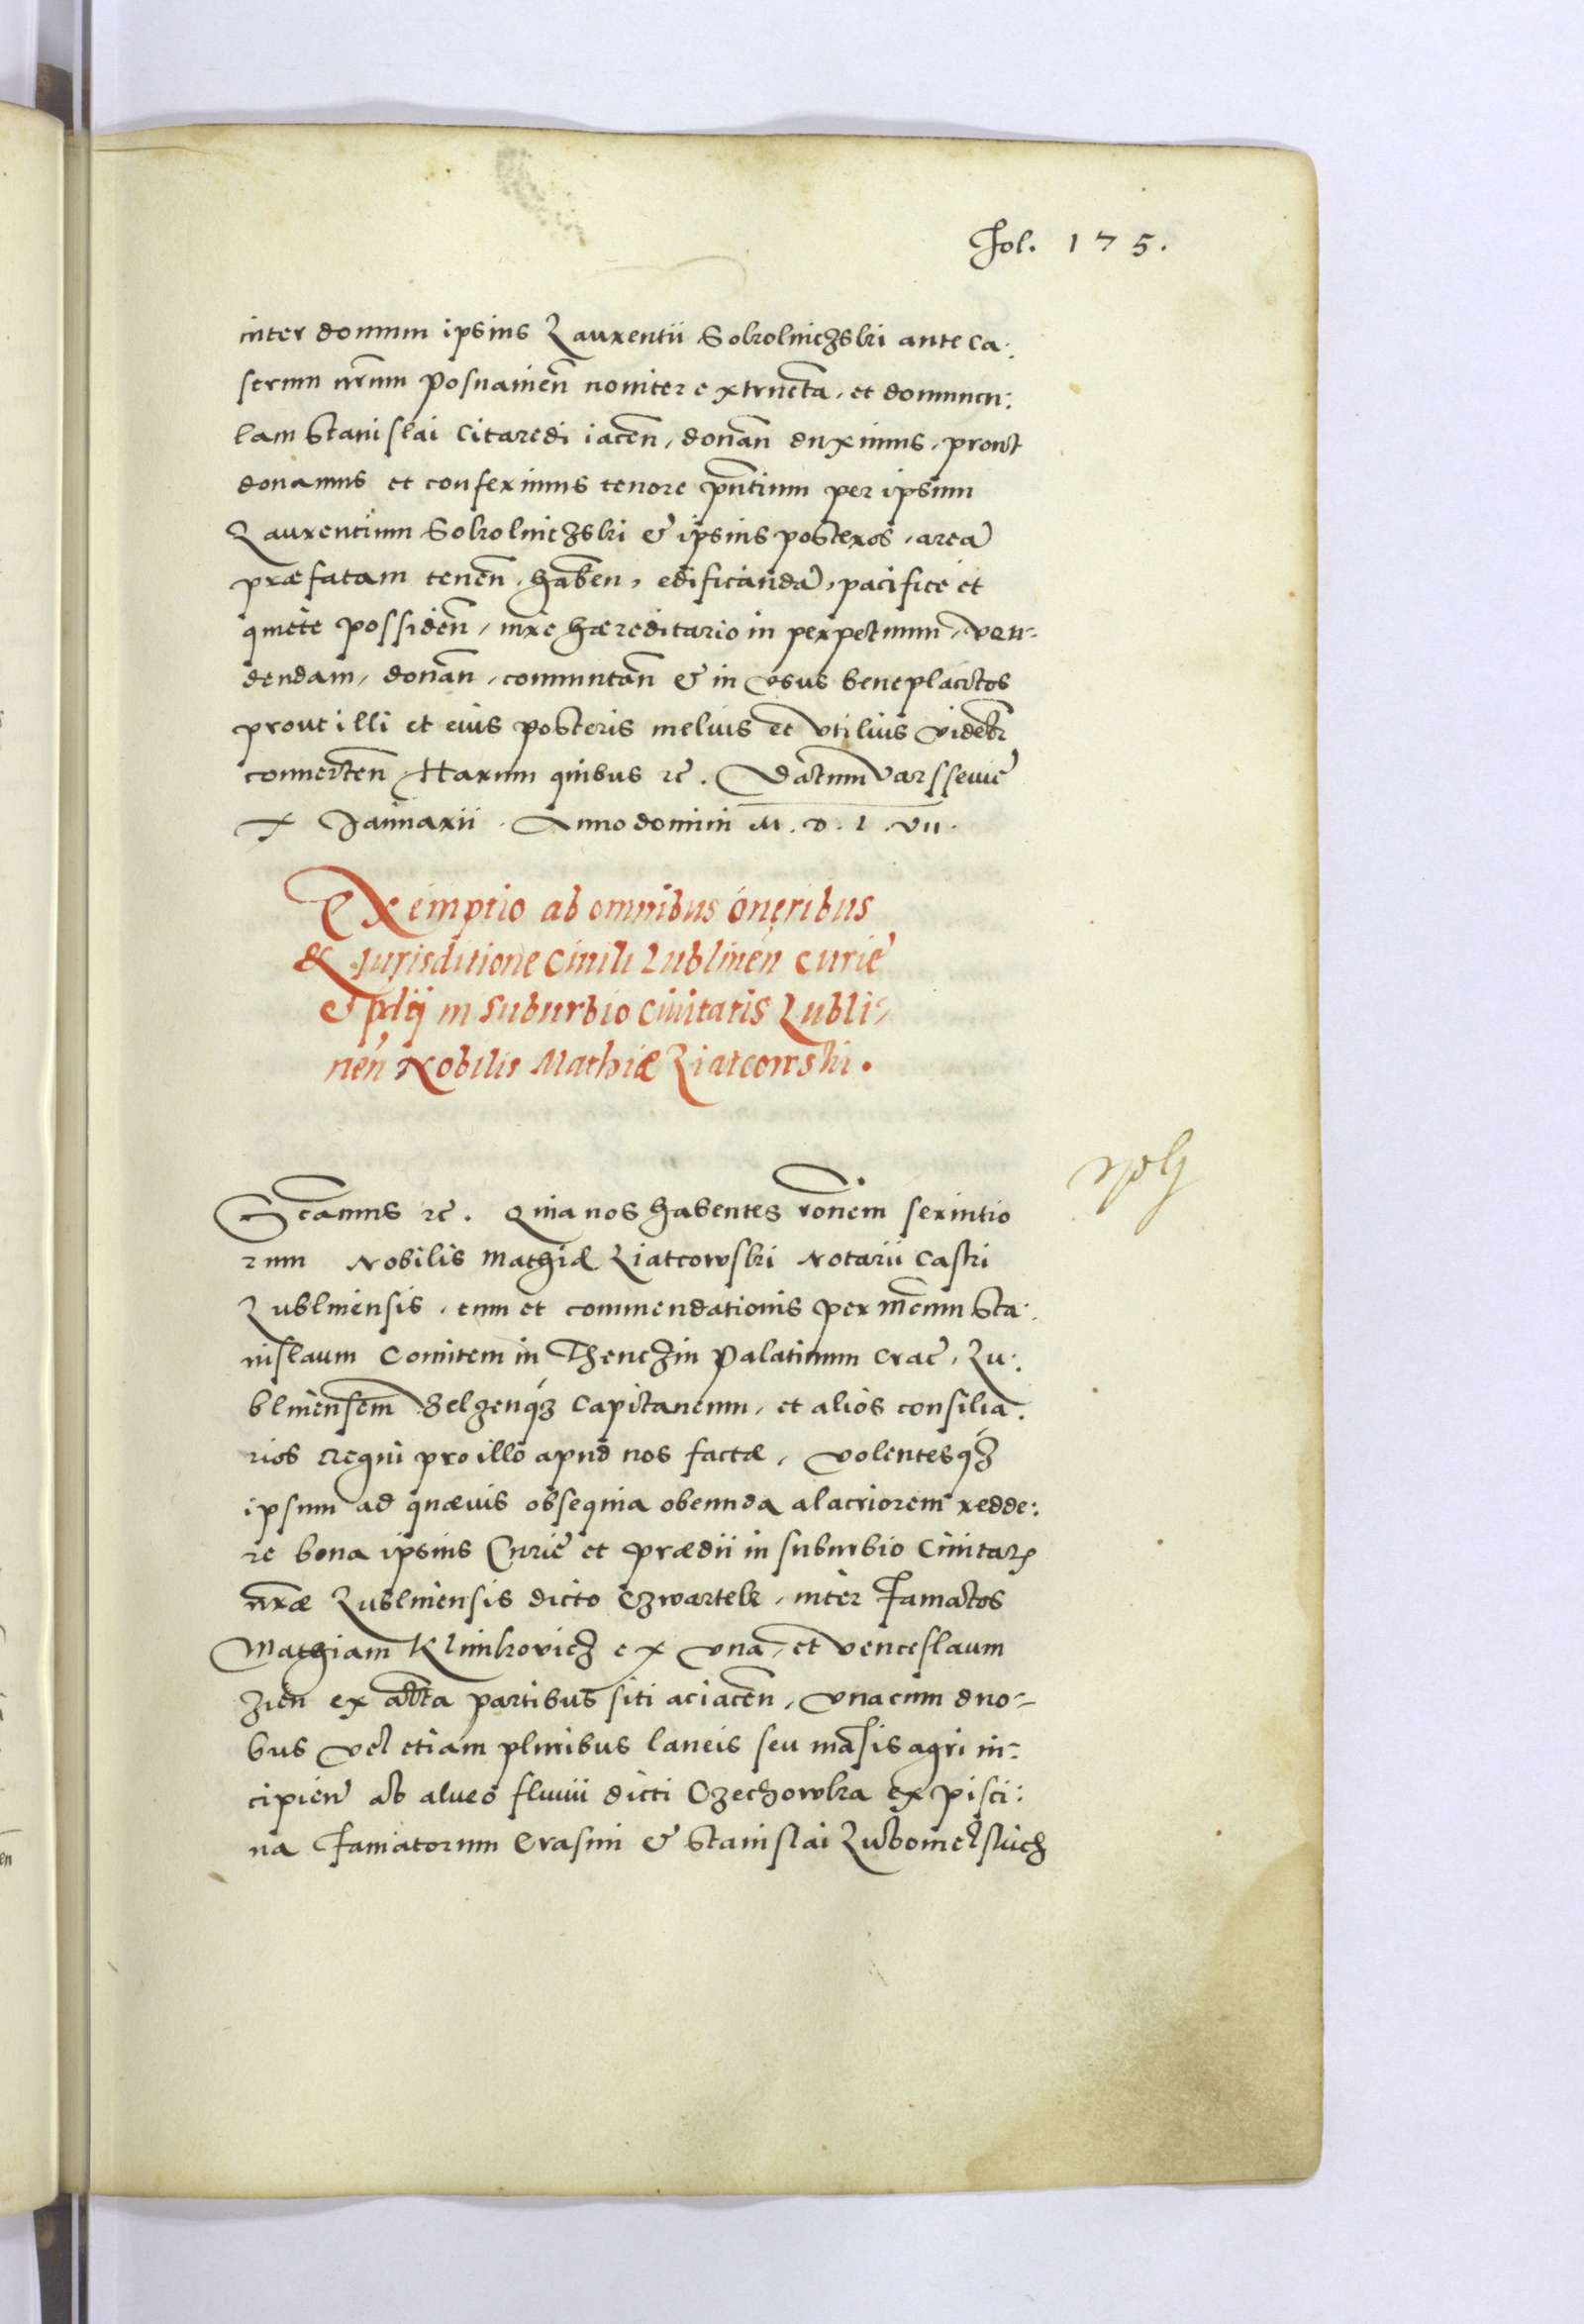 Fol. 175.
inter domum ipsius Laurentii Sokolniczski ante ca:
strum nrum Posnanien noviter extructa, et domuncu:
lam Stanislai Citaredi iacen, donan duximus, prout
donamus et conferimus tenore pntium per ipsum
Laurentium Sokolniczski & ipsius posteros, area
præfatam tenen, haben, edificanda, pacifice et
quiete possiden, iure hæreditario in perpetuum, ven-
dendam, donan, commutan & in vsus beneplacitos
prout illi et eius posteris melius et vtilius videbr
conuerten, Harum quibus rc. Datum Varsseuie
X Januarii. Anno domini M.D.L.VII.
Exemptio ab omnibus oneribus
& Jurisditione Ciuili Lublinen Curie
& pdij in suburbio Ciuitatis Lubli-
nen Nobilis Mathiæ Liatcowski.
Scamus rc. Quia nos habentes ronem seruitio
rum Nobilis Mathiæ Liatcowski Notarii Castri
Lublinensis, eum et commendationis per mcum Sta:
nislaum Comitem in Thenczin Palatinum Crac, Lu:
blinensem Belzenq3 Capitaneum, et alios consilia:
rios Regni pro illo apud nos factæ, volentesq3
ipsum ad quævis obsequia obeunda alacriorem redde:
re bona ipsius Curie et prædii in suburbio Ciuitatis
nræ Lublinensis dicto Czwartek, inter Famatos
Mathiam Klimkovicz ex vna, et Venceslaum
Zien ex altera partibus siti aciacen, vnacum duo-
bus vel etiam pluribus laneis seu mansis agri in-
cipien ab alueo fluuii dicti Czechowka ex pisci:
na Famatorum Erasmi & Stanislai Lubomelslich